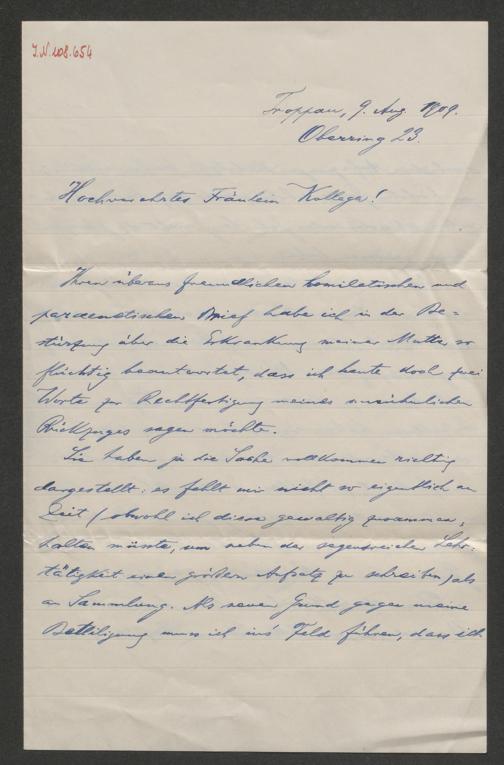 J.N. 108.654
Troppau, 9. Aug. 1909.
Oberring 23.
Hochverehrtes Fräulein Kollega!
Ihren überaus freundlichen homiletischen und
paraenetischen Brief habe ich in der Be=
stürzung über die Erkrankung meiner Mutter so
flüchtig beantwortet, dass ich heute doch zwei
Worte zur Rechtfertigung meines unrühmlichen
Rückzuges sagen möchte.
Sie haben ja die Sache vollkommen richtig
dargestellt: es fehlt mir nicht so eigentlich an
Zeit (obwohl ich diese gewaltig zusammen=
halten müsste, um neben der segensreichen Lehr=
tätigkeit einen größern Aufsatz zu schreiben) als
an Sammlung. Als neuen Grund gegen meine
Beteiligung muss ich ins Feld führen, dass ich